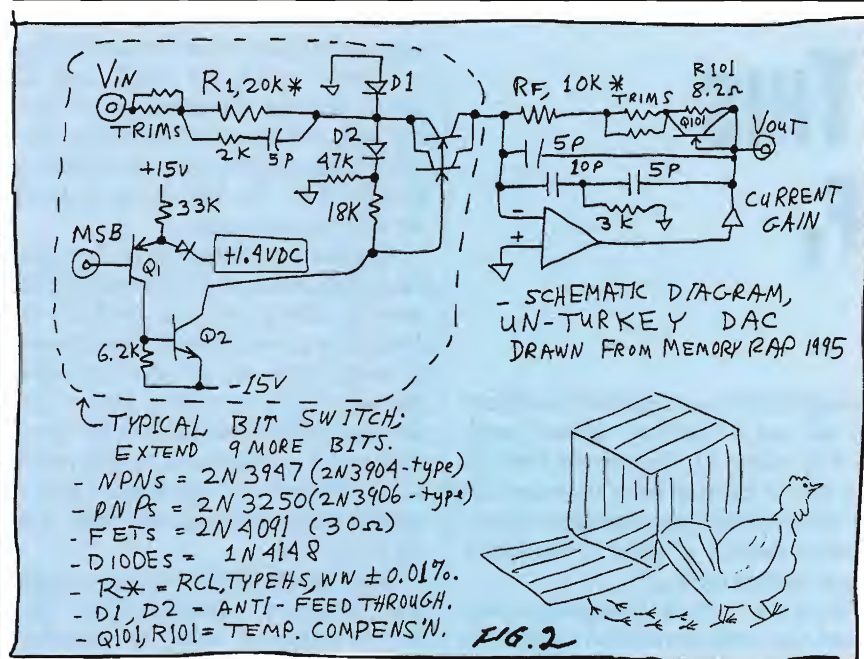 VIN
R1, 20K*
TRIMS
2K
5P
D1
D2
47K
18K
+15V
33K
MSB
Q1
+1.4VDC
Q2
6.2K
-15V
RF, 10K*
TRIMS
R101
8.2Ω
Q101
VOUT
5P
10P
5P
3K
-
+
CURRENT
GAIN
- SCHEMATIC DIAGRAM,
UN-TURKEY DAC
DRAWN FROM MEMORY RAP 1995
TYPICAL BIT SWITCH;
EXTEND 9 MORE BITS.
- NPNs = 2N3947 (2N3904-type)
- PNPs = 2N3250 (2N3906-type)
- FETs = 2N4091 (30Ω)
- DIODES = 1N4148
- R* = RCL, TYPE HS, WW ±0.01%.
- D1, D2 = ANTI-FEED THROUGH.
- Q101, R101 = TEMP. COMPENS'N.
FIG. 2